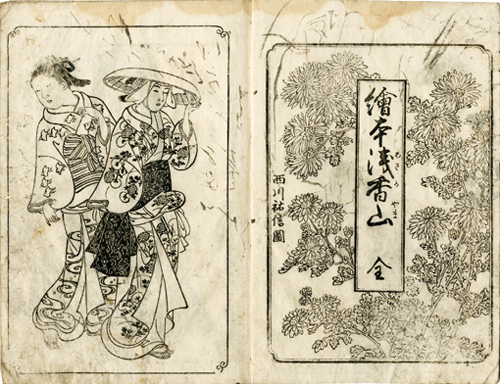 繪本浅香山 全
あさか やま
西川祐信圖